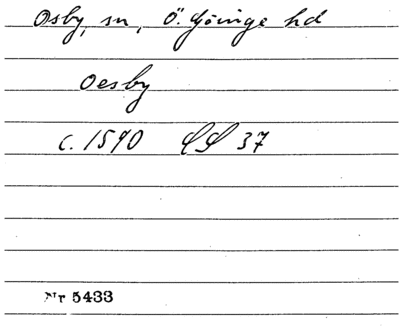 Osby, sn, Ö. Göinge hd
Oesby
c. 1590 LS 37
Nr 5433